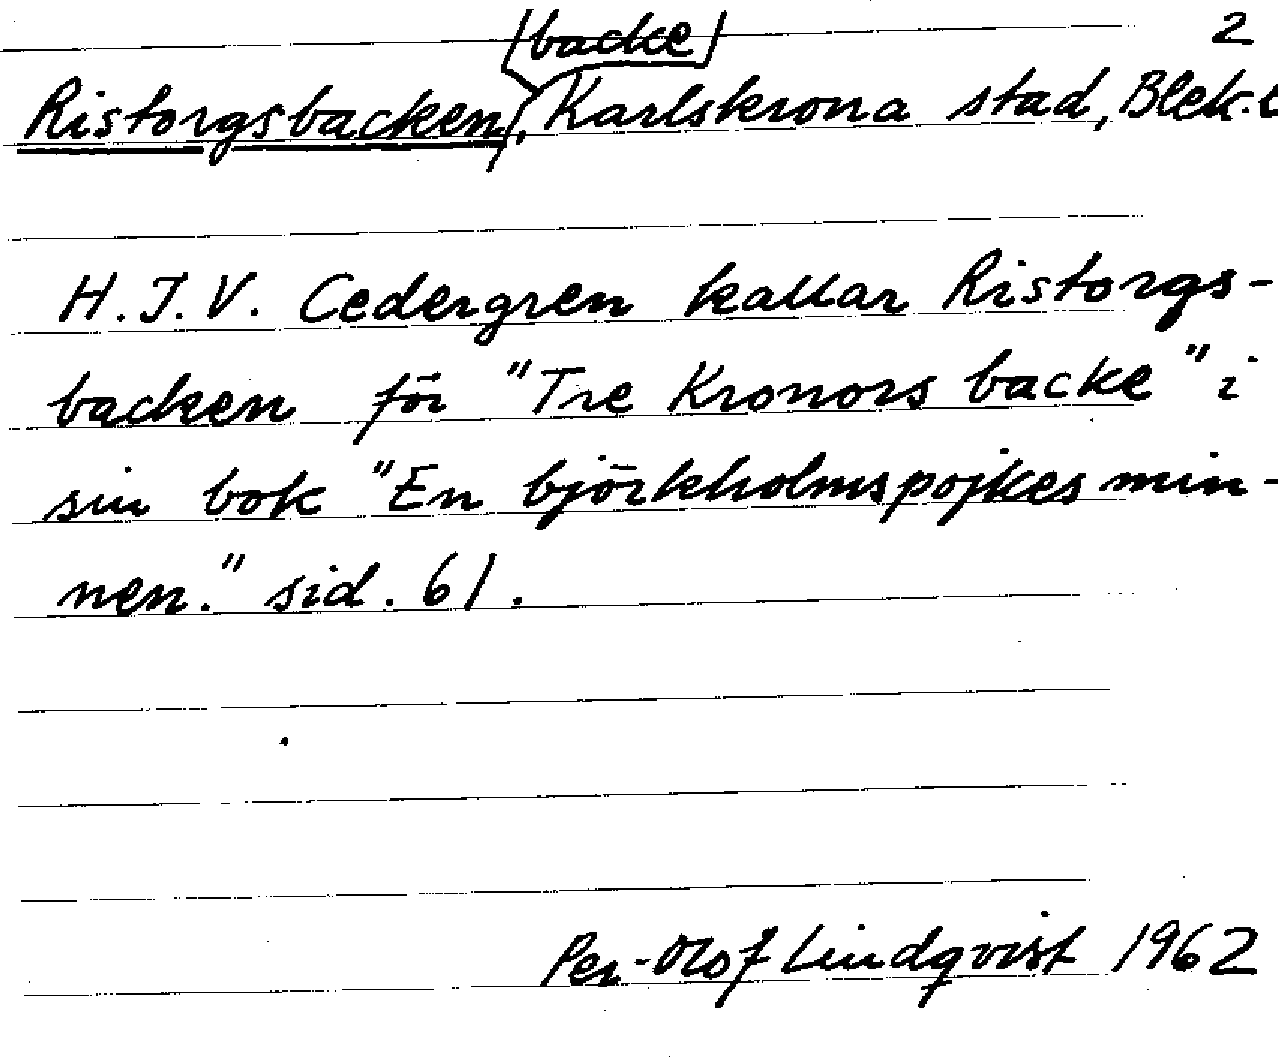 (backe) 2
Ristorgsbacken, Karlskrona stad, Blek.
H.J.V. Cedergren kallar Ristorgs-
backen för "Tre Kronors backe" i
sin bok "En björkholmspojkes min-
nen." sid. 61.
Per-Olof Lindqvist 1962